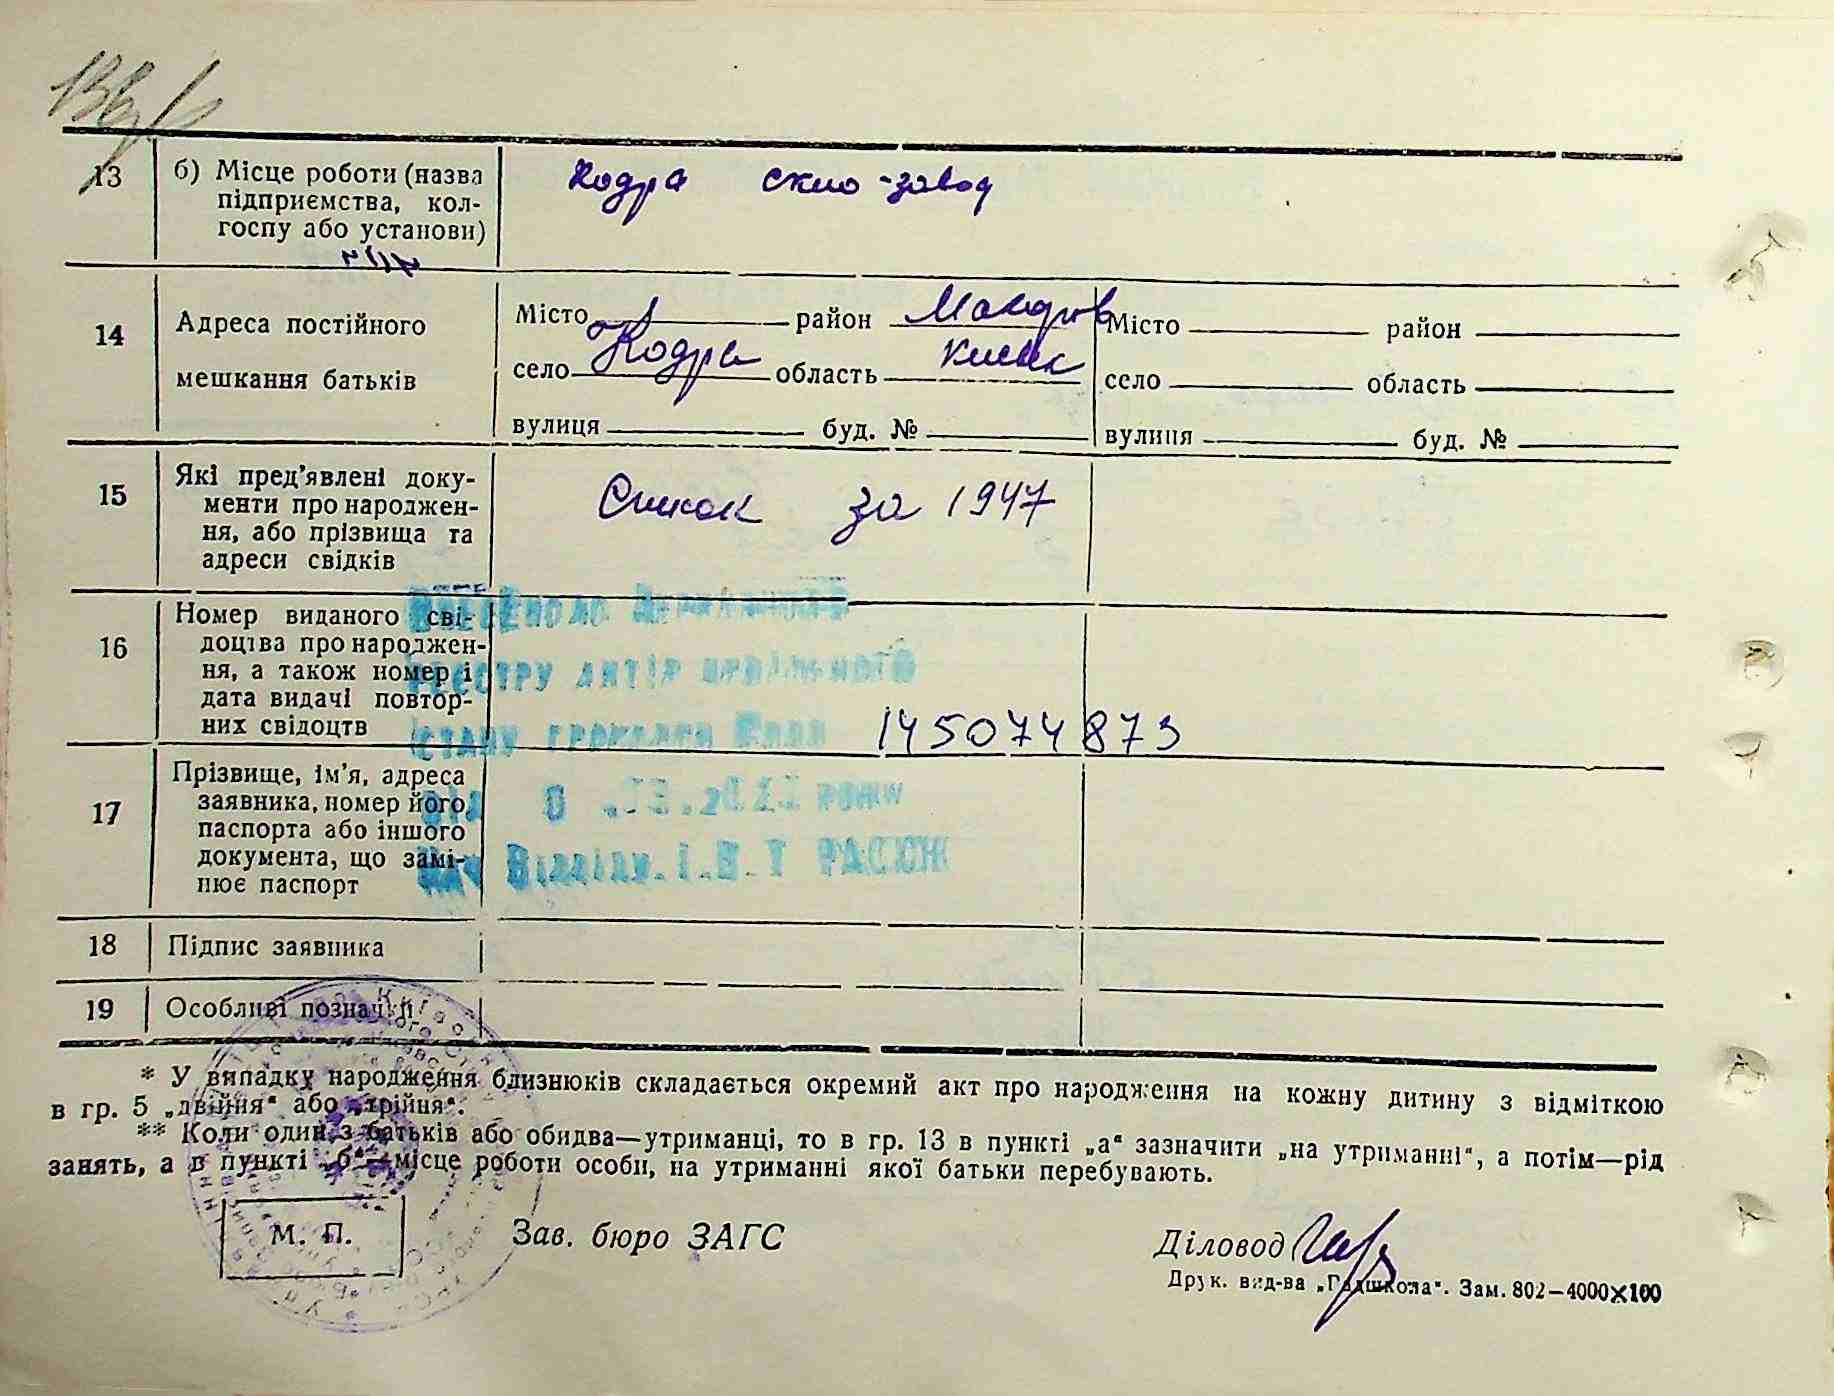 13 б) Місце роботи (назва підприємства, кол-госпу або установи) Кодра скло-завод
14 Адреса постійного мешкання батьків
Місто район Макарів Місто район
село Кодра область Київськ село область
вулиця буд. № вулиця буд. №
15 Які пред’явлені доку-
менти про народжен-
ня, або прізвища та
адреси свідків
Список за 1947
16 Номер виданого сві-
доцтва про народжен-
ня, а також номер і
дата видачі повтор-
них свідоцтв
145074873
Внесено до Державного
реєстру актів цивільного
стану громадян
17 Прізвище, ім’я, адреса
заявника, номер його
паспорта або іншого
документа, що замі-
нює паспорт
від року
Нач Відділу РАЦСЖ
18 Підпис заявника
19 Особливі позначки
* У випадку народження близнюків складається окремий акт про народження на кожну дитину з відміткою
в гр. 5 „двійня“ або „трійня“.
** Коли один з батьків або обидва—утриманці, то в гр. 13 в пункті „а“ зазначити „на утриманні“, а потім—рід
занять, а в пункті „б“—місце роботи особи, на утриманні якої батьки перебувають.
М. П. Зав. бюро ЗАГС Діловод
Друк. вид-ва „Радшкола“. Зам. 802—4000×100